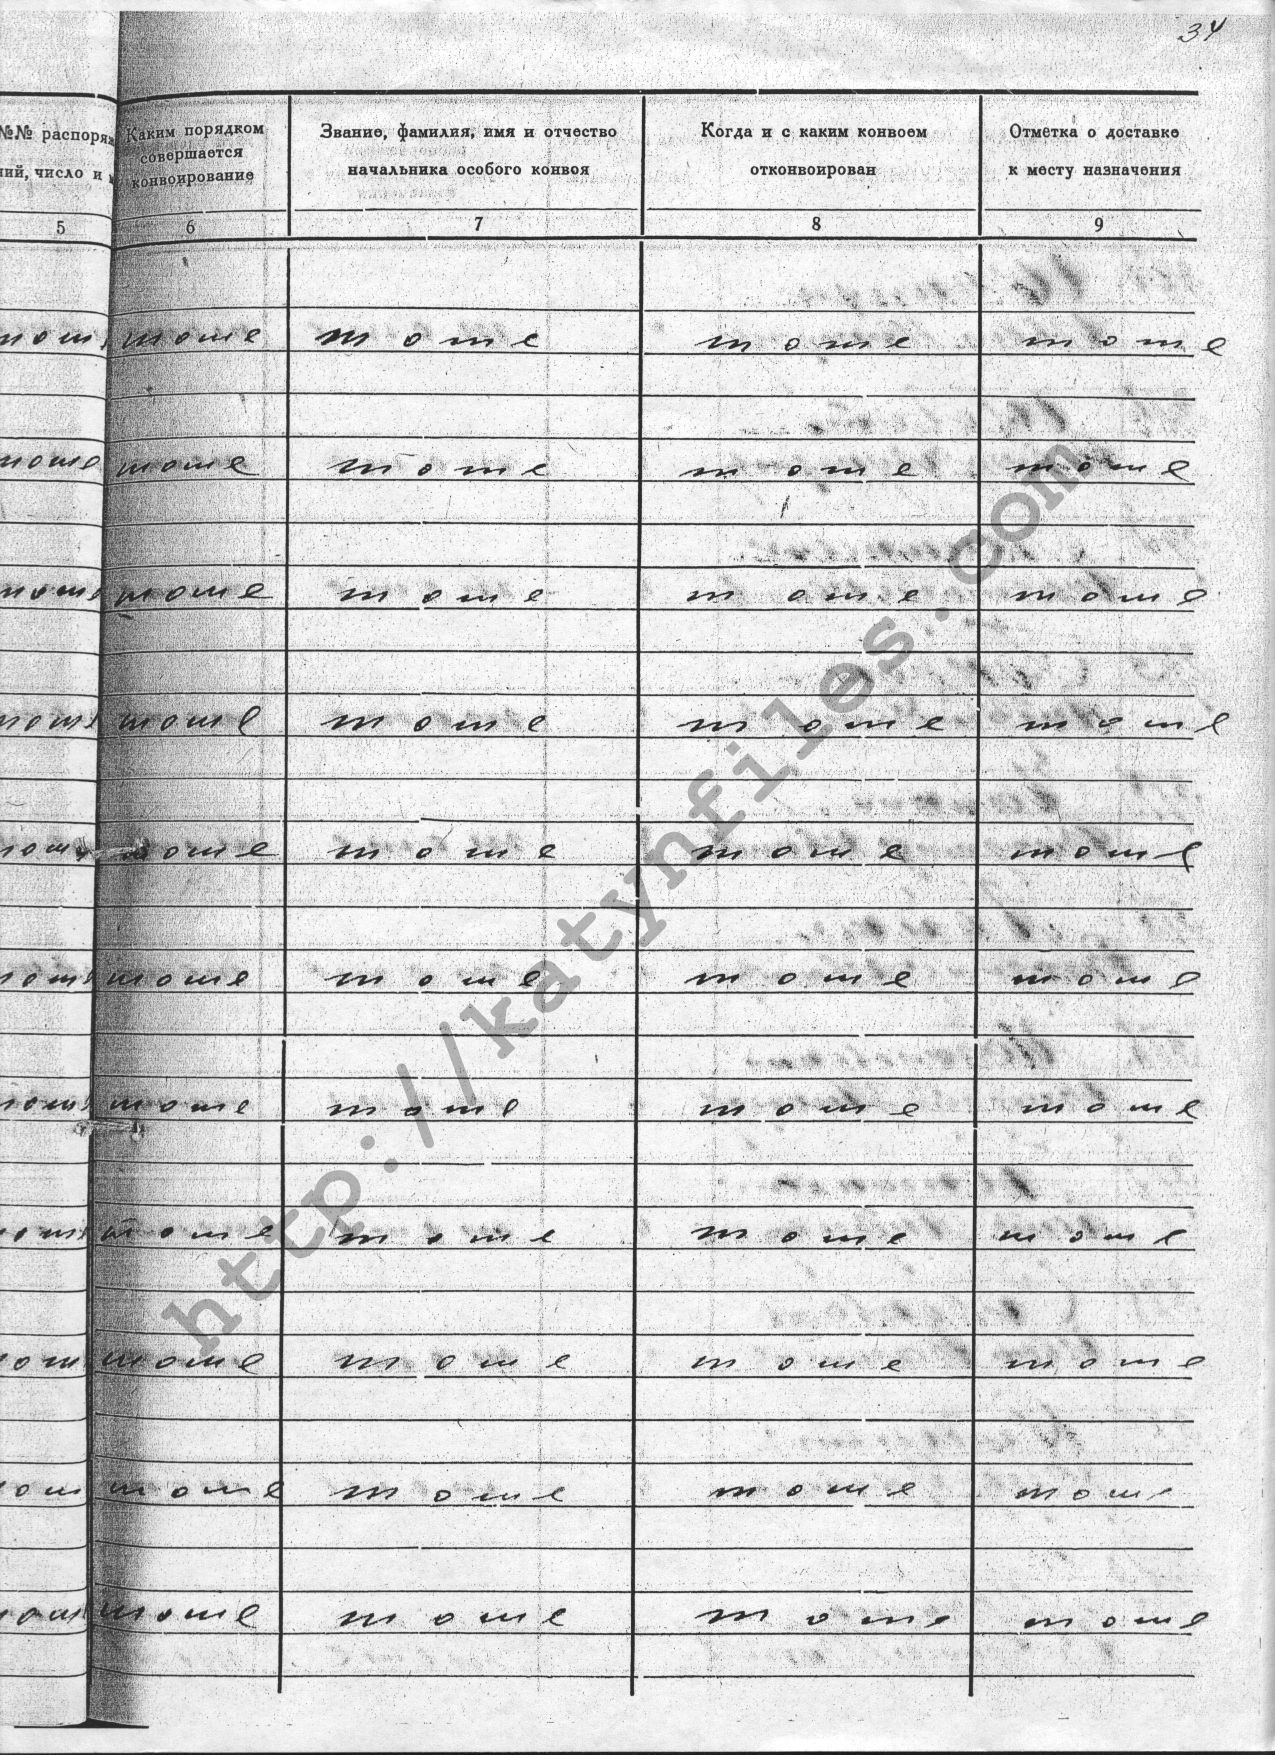 34
№№ распоря
Каким порядком
Звание, фамилия, имя и отчество
Когда и с каким конвоем
Отметка о доставке
ний, число и
совершается
конвоирование
начальника особого конвоя
отконвоирован
к месту назначения
5 6 7 8 9
тоже тоже тоже тоже
тоже тоже тоже тоже тоже
тоже тоже тоже тоже
тоже тоже тоже тоже
тоже тоже тоже тоже
тоже тоже тоже тоже
тоже тоже тоже тоже
тоже тоже тоже тоже
тоже тоже тоже тоже
тоже тоже тоже тоже
тоже тоже тоже тоже
http://katynfiles.com